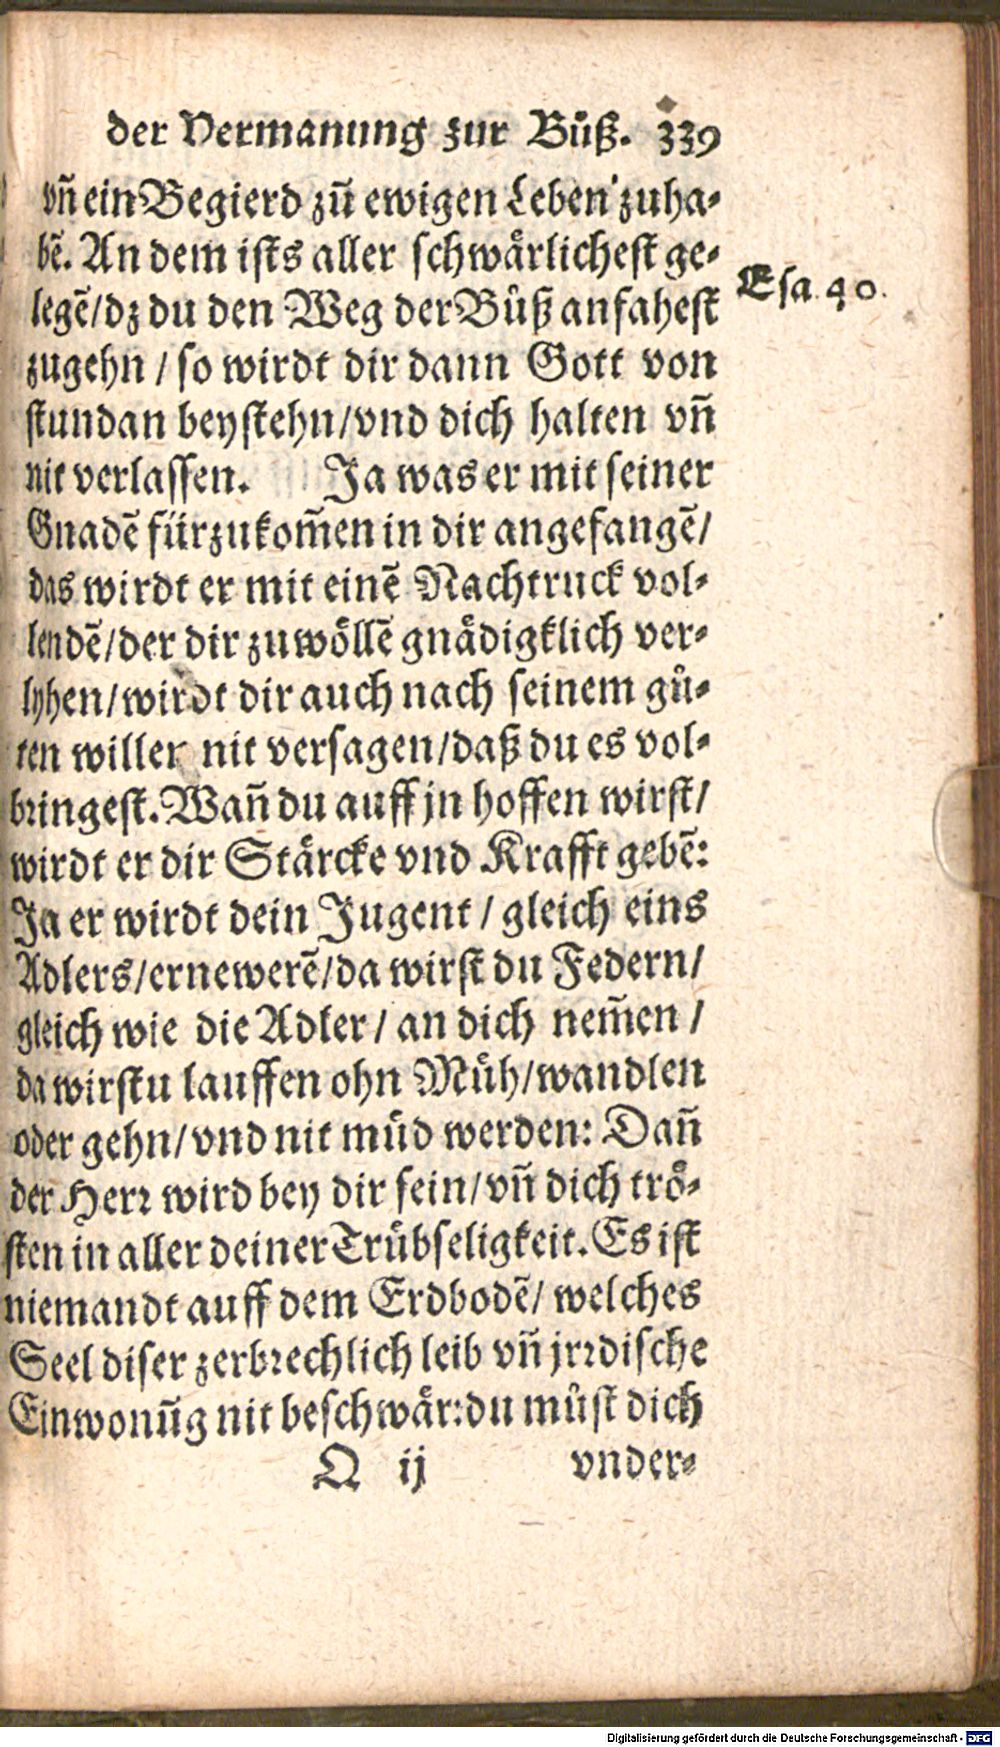 der Vermanung zur Bůß. 339
vñ ein Begierd zů ewigen Leben zuha-
bẽ. An dem ists aller schwårlichest ge-
legẽ/dz du den Weg der Bůß anfahest
Esa. 40.
zugehn / so wirdt dir dann Gott von
stundan beystehn/vnd dich halten vñ
nit verlassen. Ja was er mit seiner
Gnadẽ fürzukom̃en in dir angefangẽ/
das wirdt er mit einẽ Nachtruck vol-
lendẽ/der dir zuwöllẽ gnådigklich ver-
lyhen/wirdt dir auch nach seinem gů-
ten willen nit versagen/daß du es vol-
bringest. Wañ du auff jn hoffen wirst/
wirdt er dir Stårcke vnd Krafft gebẽ:
Ja er wirdt dein Jugent / gleich eins
Adlers/ernewerẽ/da wirst du Federn/
gleich wie die Adler/ an dich nem̃en /
da wirstu lauffen ohn Můh/wandlen
oder gehn/vnd nit můd werden: Dañ
der Herr wird bey dir sein/vñ dich trö-
sten in aller deiner Trůbseligkeit. Es ist
niemandt auff dem Erdbodẽ/ welches
Seel diser zerbrechlich leib vñ jrrdische
Einwonũg nit beschwår: du můst dich
Q ij vnder-
Digitalisierung gefördert durch die Deutsche Forschungsgemeinschaft - DFG